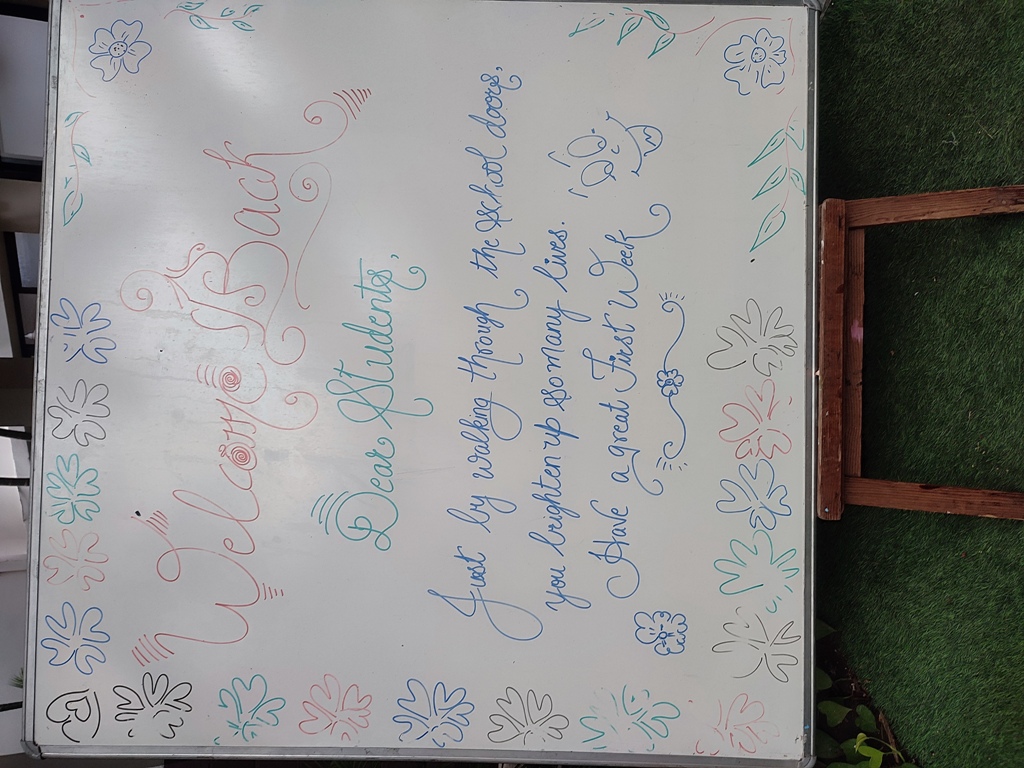 Welcome Back
Dear Students,
Just by walking through the school doors,
you brighten up so many lives.
Have a great First Week